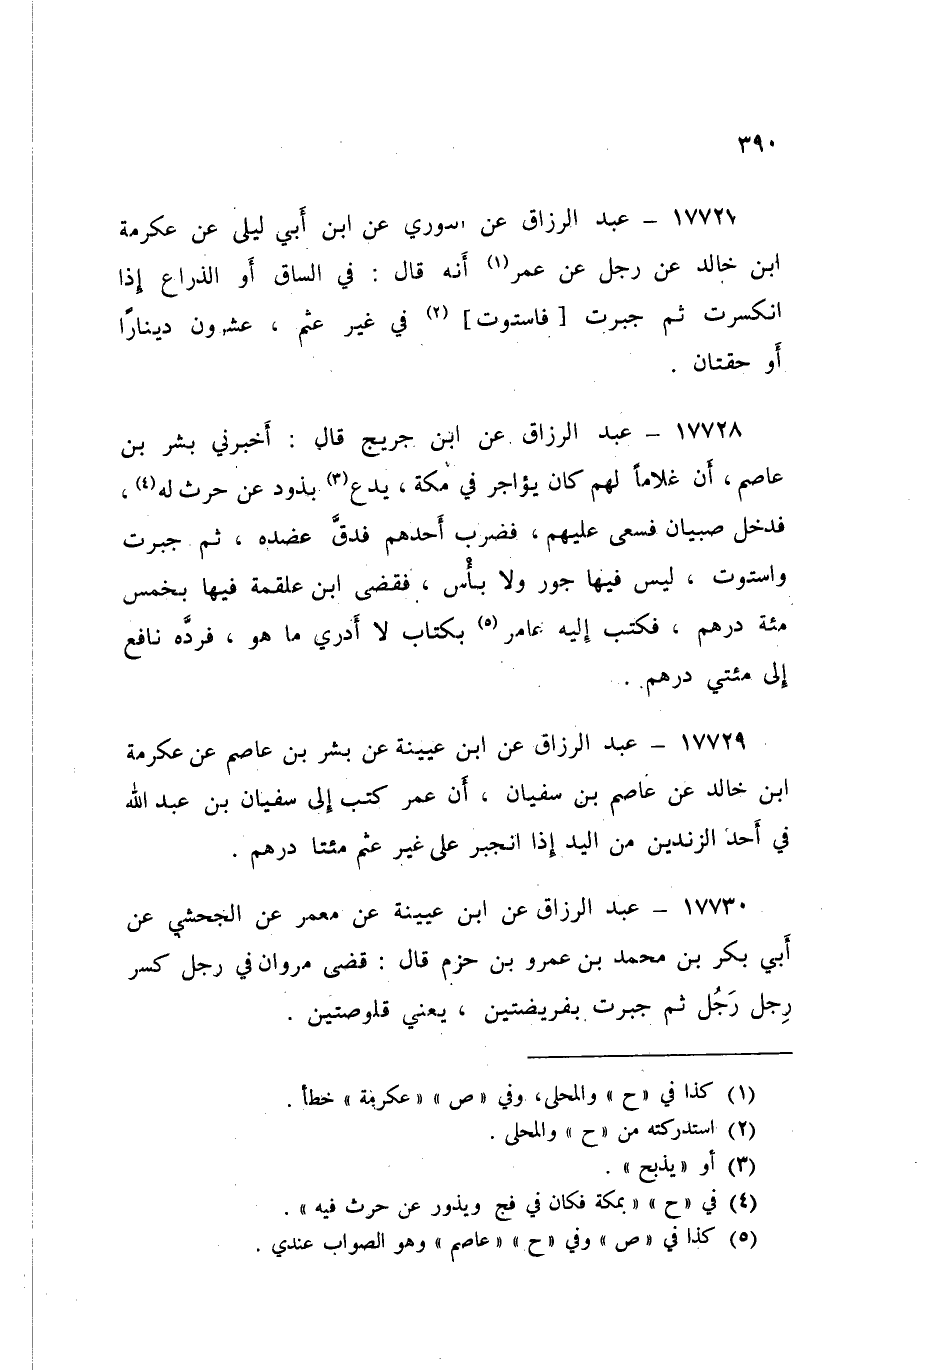 ٣٩٠
١٧٧٢٧ ــ عبد الرزاق عن الثوري عن ابن أبي ليلى عن عكرمة
ابن خالد عن رجل عن عمر(١) أنه قال : في الساق أو الذراع إذا
انكسرت ثم جبرت [ فاستوت ] (٢) في غير عثم ، عشرون دينارًا
أو حقتان .
١٧٧٢٨ ــ عبد الرزاق عن ابن جريج قال : أخبرني بشر بن
عاصم ، أن غلاماً لهم كان يؤاجر في مكة ، يدع(٣) بذود عن حرث له(٤) ،
فدخل صبيان فسعى عليهم ، فضرب أحدهم فدقَّ عضده ، ثم جبرت
واستوت ، ليس فيها جور ولا بأْس ، فقضى ابن علقمة فيها بخمس
مئة درهم ، فكتب إليه عامر (٥) بكتاب لا أدري ما هو ، فردَّه نافع
إلى مئتي درهم .
١٧٧٢٩ ــ عبد الرزاق عن ابن عيينة عن بشر بن عاصم عن عكرمة
ابن خالد عن عاصم بن سفيان ، أن عمر كتب إلى سفيان بن عبد الله
في أحد الزندين من اليد إذا انجبر على غير عثم مئتا درهم .
١٧٧٣٠ ــ عبد الرزاق عن ابن عيينة عن معمر عن الجحشي عن
أبي بكر بن محمد بن عمرو بن حزم قال : قضى مروان في رجل كسر
رِجل رَجُل ثم جبرت بفريضتين ، يعني قلوصتين .
(١) كذا في « ح » والمحلى، وفي « ص » « عكرمة » خطأ .
(٢) استدركته من « ح » والمحلى .
(٣) أو « يذبح » .
(٤) في « ح » « بمكة فكان في فج ويذور عن حرث فيه » .
(٥) كذا في « ص » وفي « ح » « عاصم » وهو الصواب عندي .